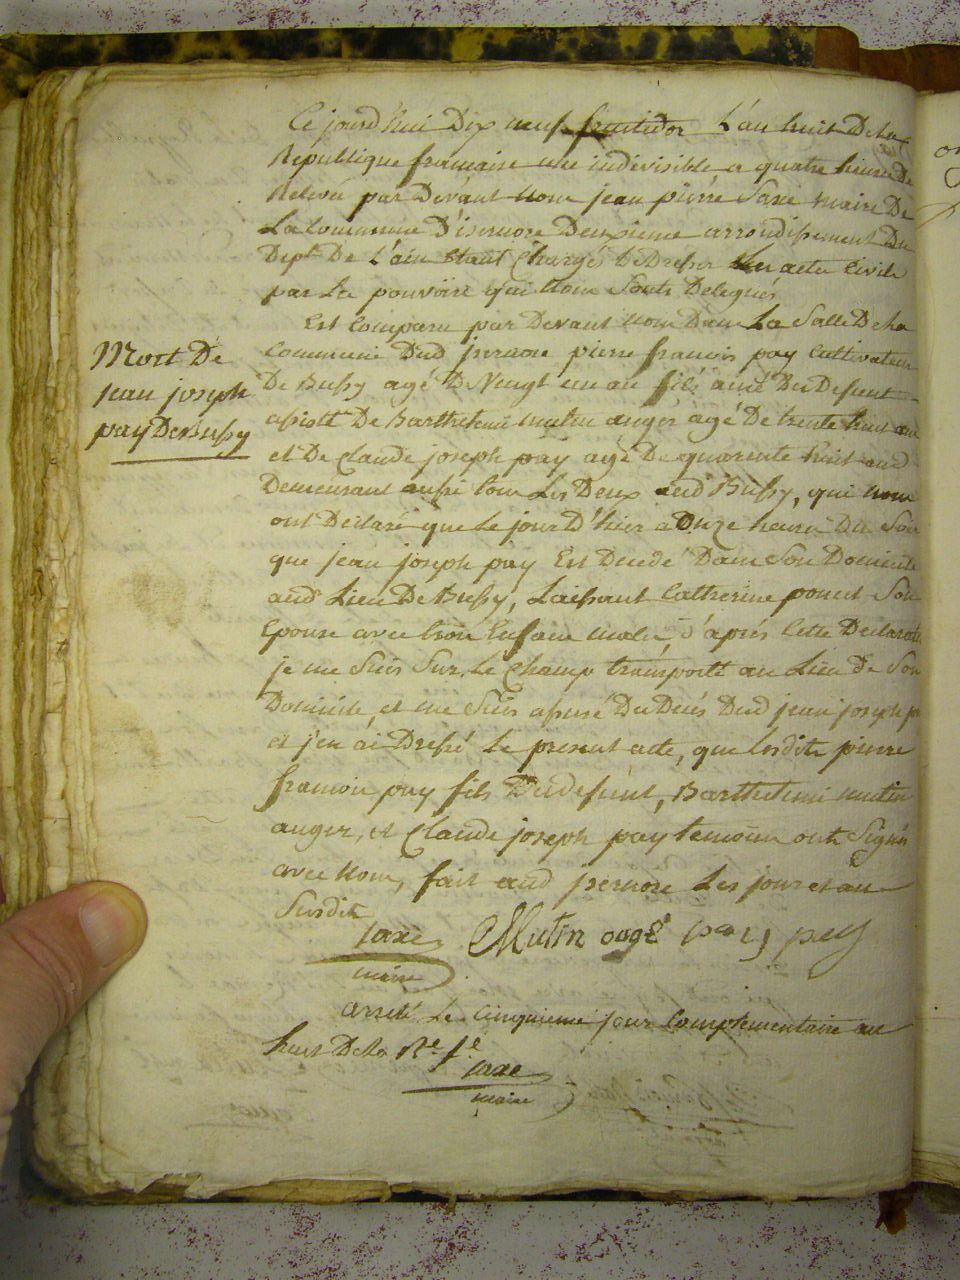 Ce jourd'hui Dix neuf fructidor L'an huit De la
Republique francaise une indivisible a quatre heure De
Relevée par Devant nous jean pierre Saxe maire De
La Commune D'isernore Deuxieme arrondissement Du
Dept De L'ain Etant Chargé De Dresser Les actes Civils
par Les pouvoirs qui nous Sont Delegués
Est Comparu par Devant nous Dans La Salle De la
Mort De
jean joseph
pay De Bussy
Commune Dud jsernore pierre francois pay Cultivateur
De Bussy agé De Vingt un an fils ainé Du Defunt
assisté De Barthelemi mutin anger agé De trente huit ans
et De Claude joseph pay agé De quarente huit ans
Demeurant aussi tous Les Deux aud Bussy, qui nous
ont Declaré que Le jour D'hier a Onze heures Du Soir
que jean joseph pay Est Decedé Dans Son Domicile
aud Lieu De Bussy, Laissant Catherine poncet Son
Epouse avec trois Enfans males D'après Cette Declaration
je me Suis Sur Le Champ transporté au Lieu de Son
Domicile, et me Suis assuré Du Décés Dud jean joseph pay
et j'en ai Dressé Le present acte, que Lesdits pierre
francois pay fils Dudefunt, Barthelemi mutin
anger, et Claude joseph pay temoins ont Signés
avec nous, fait aud jsernore Les jour et an
Susdits
Saxe Mutin ongé pay pey
maire
arreté Le Cinquieme jour Complementaire an
huit De la Re fe
Saxe
maire